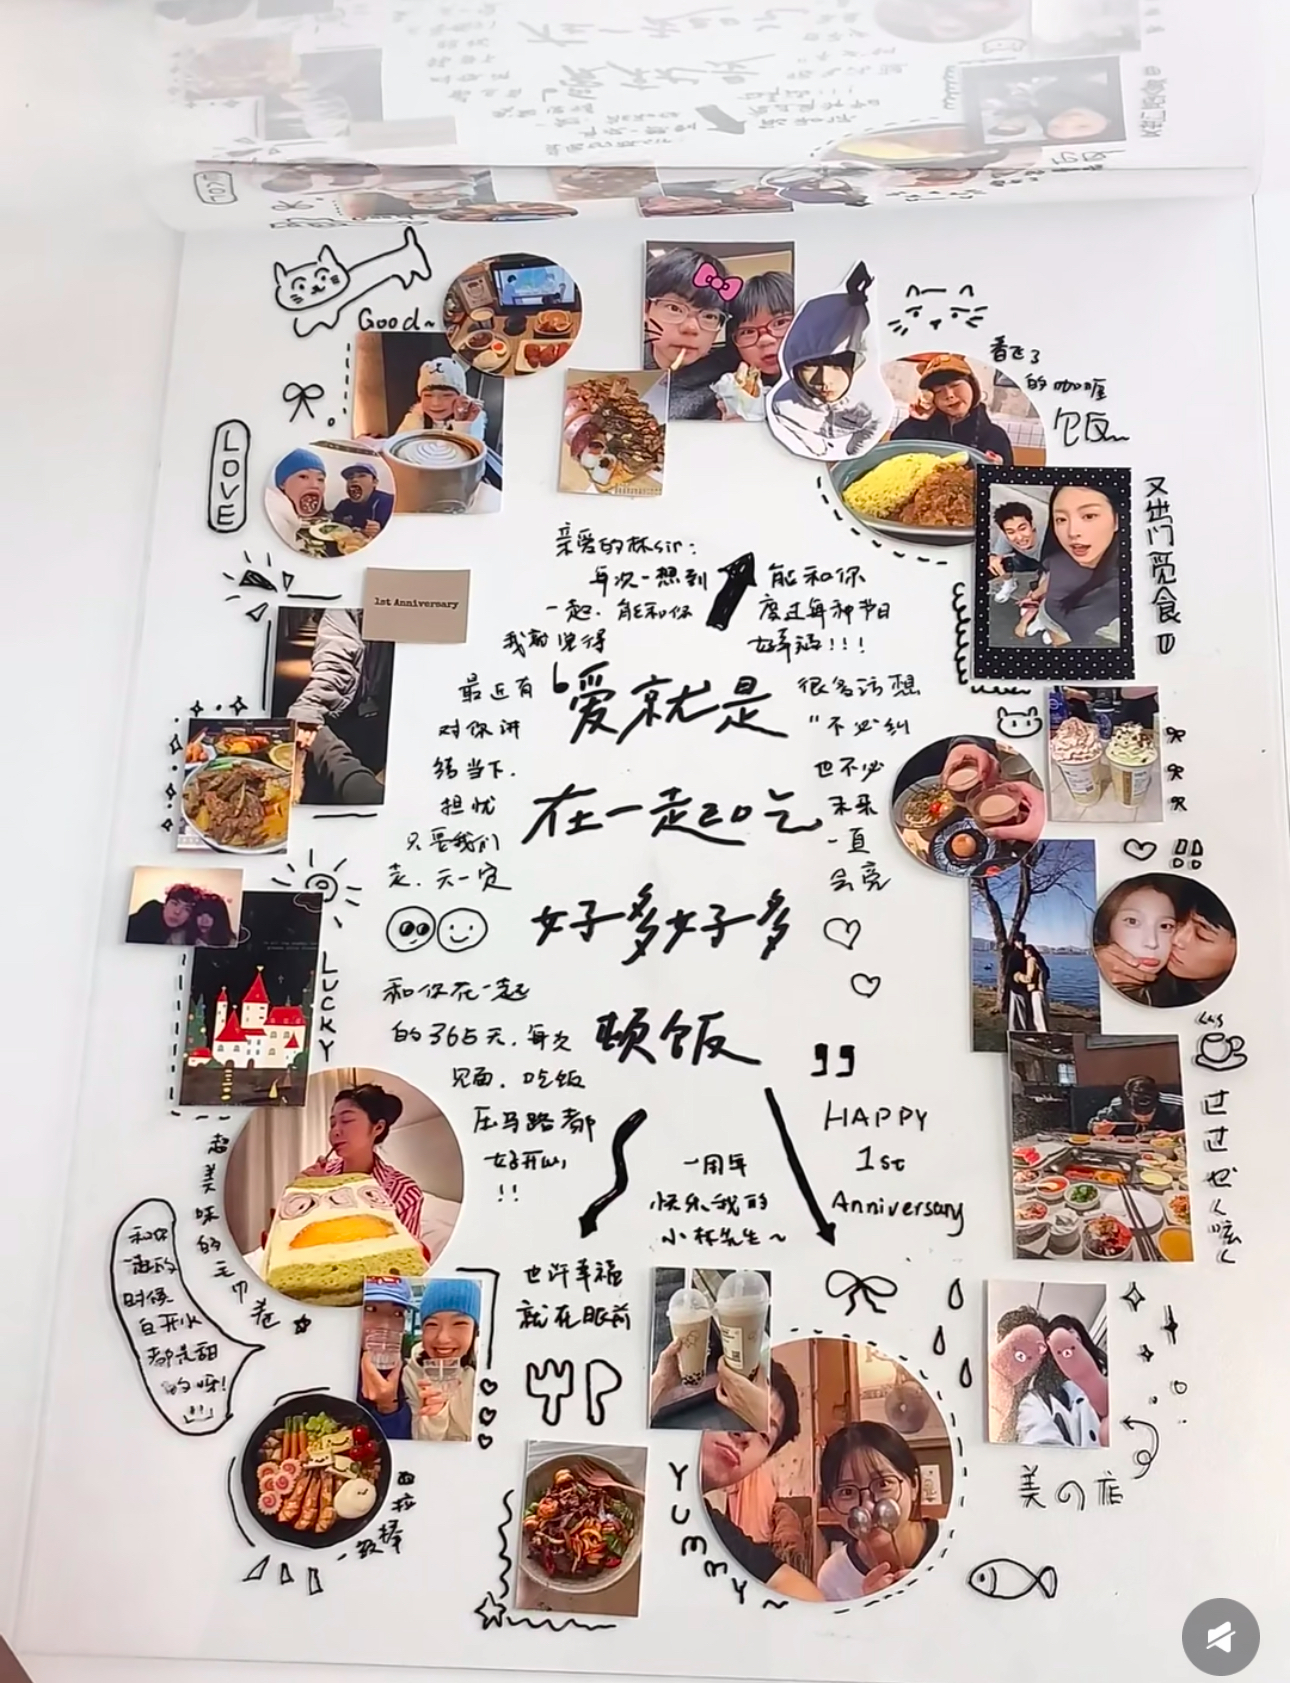 Good~
LOVE
香飞了
的咖喱
饭~
又出门觅食
亲爱的林sir:
每次一想到
能和你
一起、能和你
度过每种节日
我都觉得
好幸福!!!
1st Anniversary
“爱就是
在一起吃
好多好多
顿饭
”
最近有
很多话想
对你讲
“不必纠
结当下、
也不必
担忧
未来
只要我们
一直
走、天一定
会亮
和你在一起
的365天、每次
见面、吃饭
压马路都
好开心
!!
LUCKY
HAPPY
1st
Anniversary
一周年
快乐我的
小林先生~
也许幸福
就在眼前
超美味的毛巾卷
和你
一起的
时候
白开水
都是甜
的呀!
YUMMY~
美の店